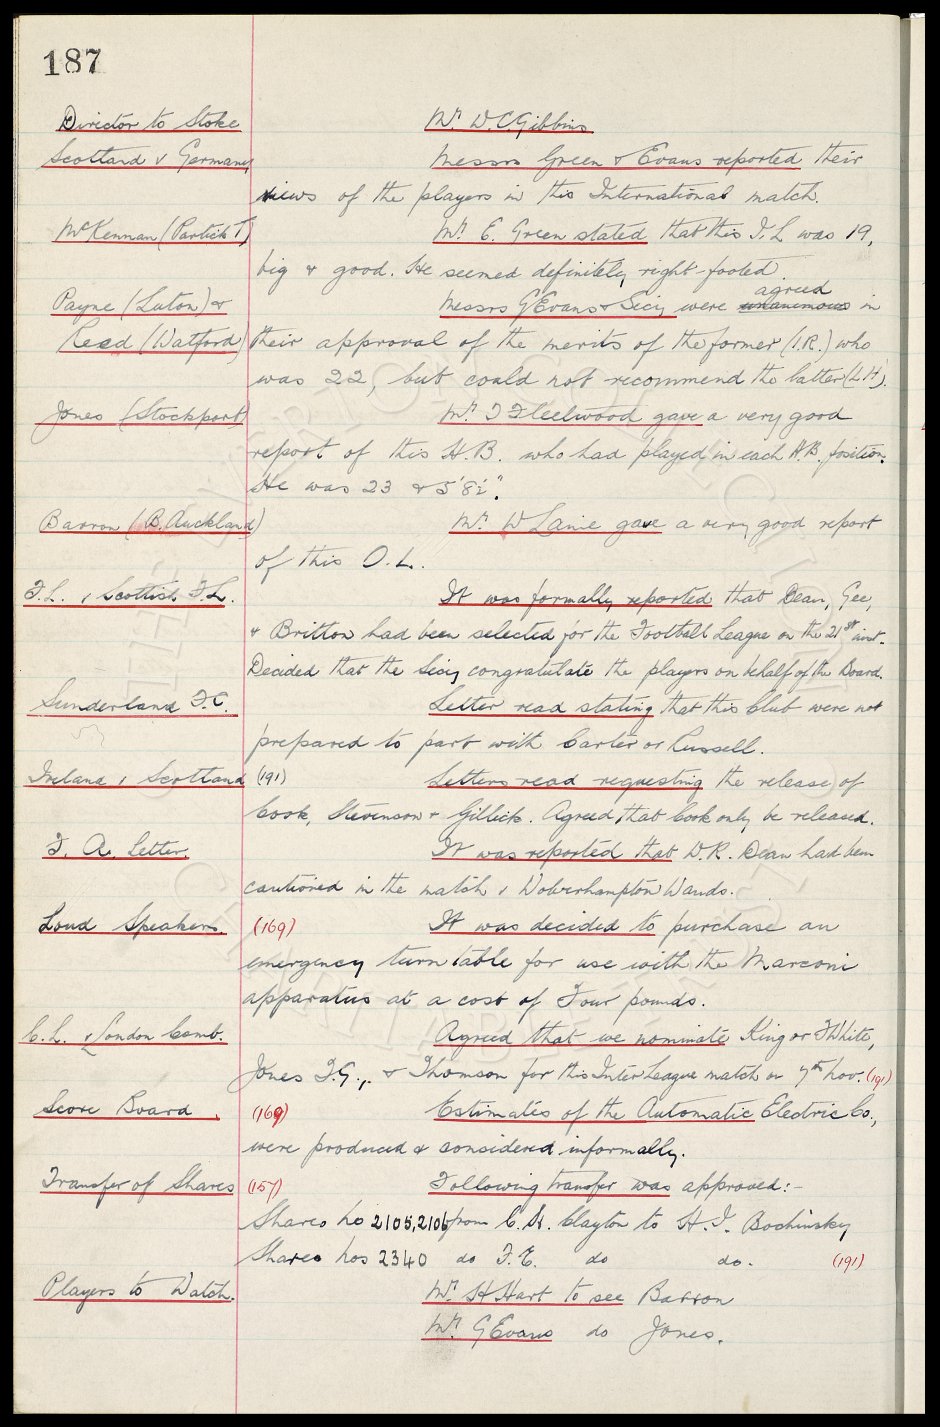 187
Director to Stoke Mr. W.C. Gibbins
Scotland v Germany Messrs Green & Evans reported their
views of the players in this International match.
McKennan (Partick T) Mr. E. Green stated that this I.L. was 19,
big & good. He seemed definitely right-footed.
agreed
Payne (Luton) & Messrs G Evans & Secy were unanimous in
Reed (Watford) their approval of the merits of the former (I.R.) who
was 22, but could not recommend the latter (L.H.).
Jones (Stockport) Mr. J Fleetwood gave a very good
report of this H.B. who had played in each H.B. position.
He was 23 & 5'8½".
Barron (B. Auckland) Mr. W Lanie gave a very good report
of this O.L.
F.L. v Scottish F.L. It was formally reported that Dean, Gee,
& Britton had been selected for the Football League on the 21st inst.
Decided that the Secy congratulate the players on behalf of the Board.
Sunderland F.C. Letter read stating that this Club were not
prepared to part with Carter or Russell.
Ireland v Scotland (191) Letters read requesting the release of
Cook, Stevenson & Gillick. Agreed that Cook only be released.
F. A. Letter. It was reported that W.R. Dean had been
cautioned in the match v Wolverhampton Wands.
Loud Speakers. (169) It was decided to purchase an
emergency turn table for use with the Marconi
apparatus at a cost of Four pounds.
C.L. v London Comb. Agreed that we nominate King or T White,
Jones T.G., & Thomson for this Inter League match on 7th Nov. (191)
Score Board. (169) Estimates of the Automatic Electric Co.,
were produced & considered informally.
Transfer of Shares (157) Following transfer was approved:-
Shares No 2105,2106 from C. H. Clayton to H. J. Bochinsky
Shares Nos 2340 do F.E. do do. (191)
Players to Watch. Mr. H Hart to see Barron
Mr. G Evans do Jones.